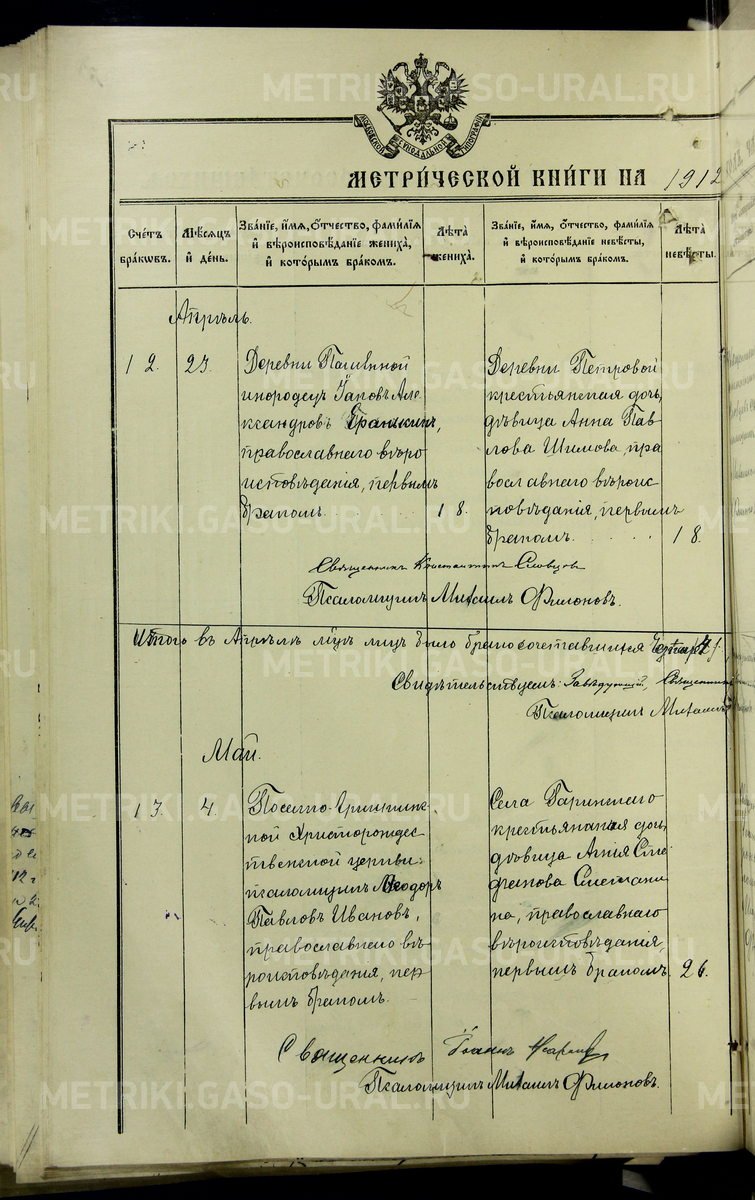 METRIKI.GASO-URAL.RU
МОСКОВСКОЙ СѴНОДАЛЬНОЙ ТИПОГРАФІИ
МЕТРИ́ЧЕСКОЙ КНИ́ГИ НА 1912
Сче́тъ бра́кѡвъ.
Мѣ́сяцъ и҆ де́нь.
Зва́нїе, и҆́мѧ, ѻ҆́тчество, фами́лїѧ и҆ вѣроисповѣ́данїе жениха̀, и҆ кото́рымъ бра́комъ.
Лѣ́та жениха̀.
Зва́нїе, и҆́мѧ, ѻ҆́тчество, фами́лїѧ и҆ вѣроисповѣ́данїе невѣ́сты, и҆ кото́рымъ бра́комъ.
Лѣ́та невѣ́сты.
Апрѣль.
12.
23.
Деревни
инородецъ Іаковъ Але-
ксандровъ
православнаго вѣро
исповѣданія, первымъ
бракомъ
18.
Деревни Петровой
крестьянская дочь,
дѣвица Анна Пав
лова Шимова, пра
вославнаго вѣроис
повѣданія, первымъ
бракомъ.
18.
Священникъ Константинъ Словцовъ
Псаломщикъ Михаилъ Филоновъ.
Итого въ Апрѣлѣ м-цѣ лицъ было бракосочетавшихся
Свидѣтельствуемъ: Завѣдующій, Священникъ
Псаломщикъ Михаилъ
Май.
13.
4.
Христорождес
твенской церкви
псаломщикъ Ѳеодоръ
Павловъ Ивановъ,
православнаго вѣ
роисповѣданія, пер
вымъ бракомъ.
Села Гаринскаго
крестьянская дочь,
дѣвица Агнія Сте
фанова Сметани
на, православнаго
вѣроисповѣданія,
первымъ бракомъ.
26.
Священникъ Іоаннъ
Псаломщикъ Михаилъ Филоновъ.